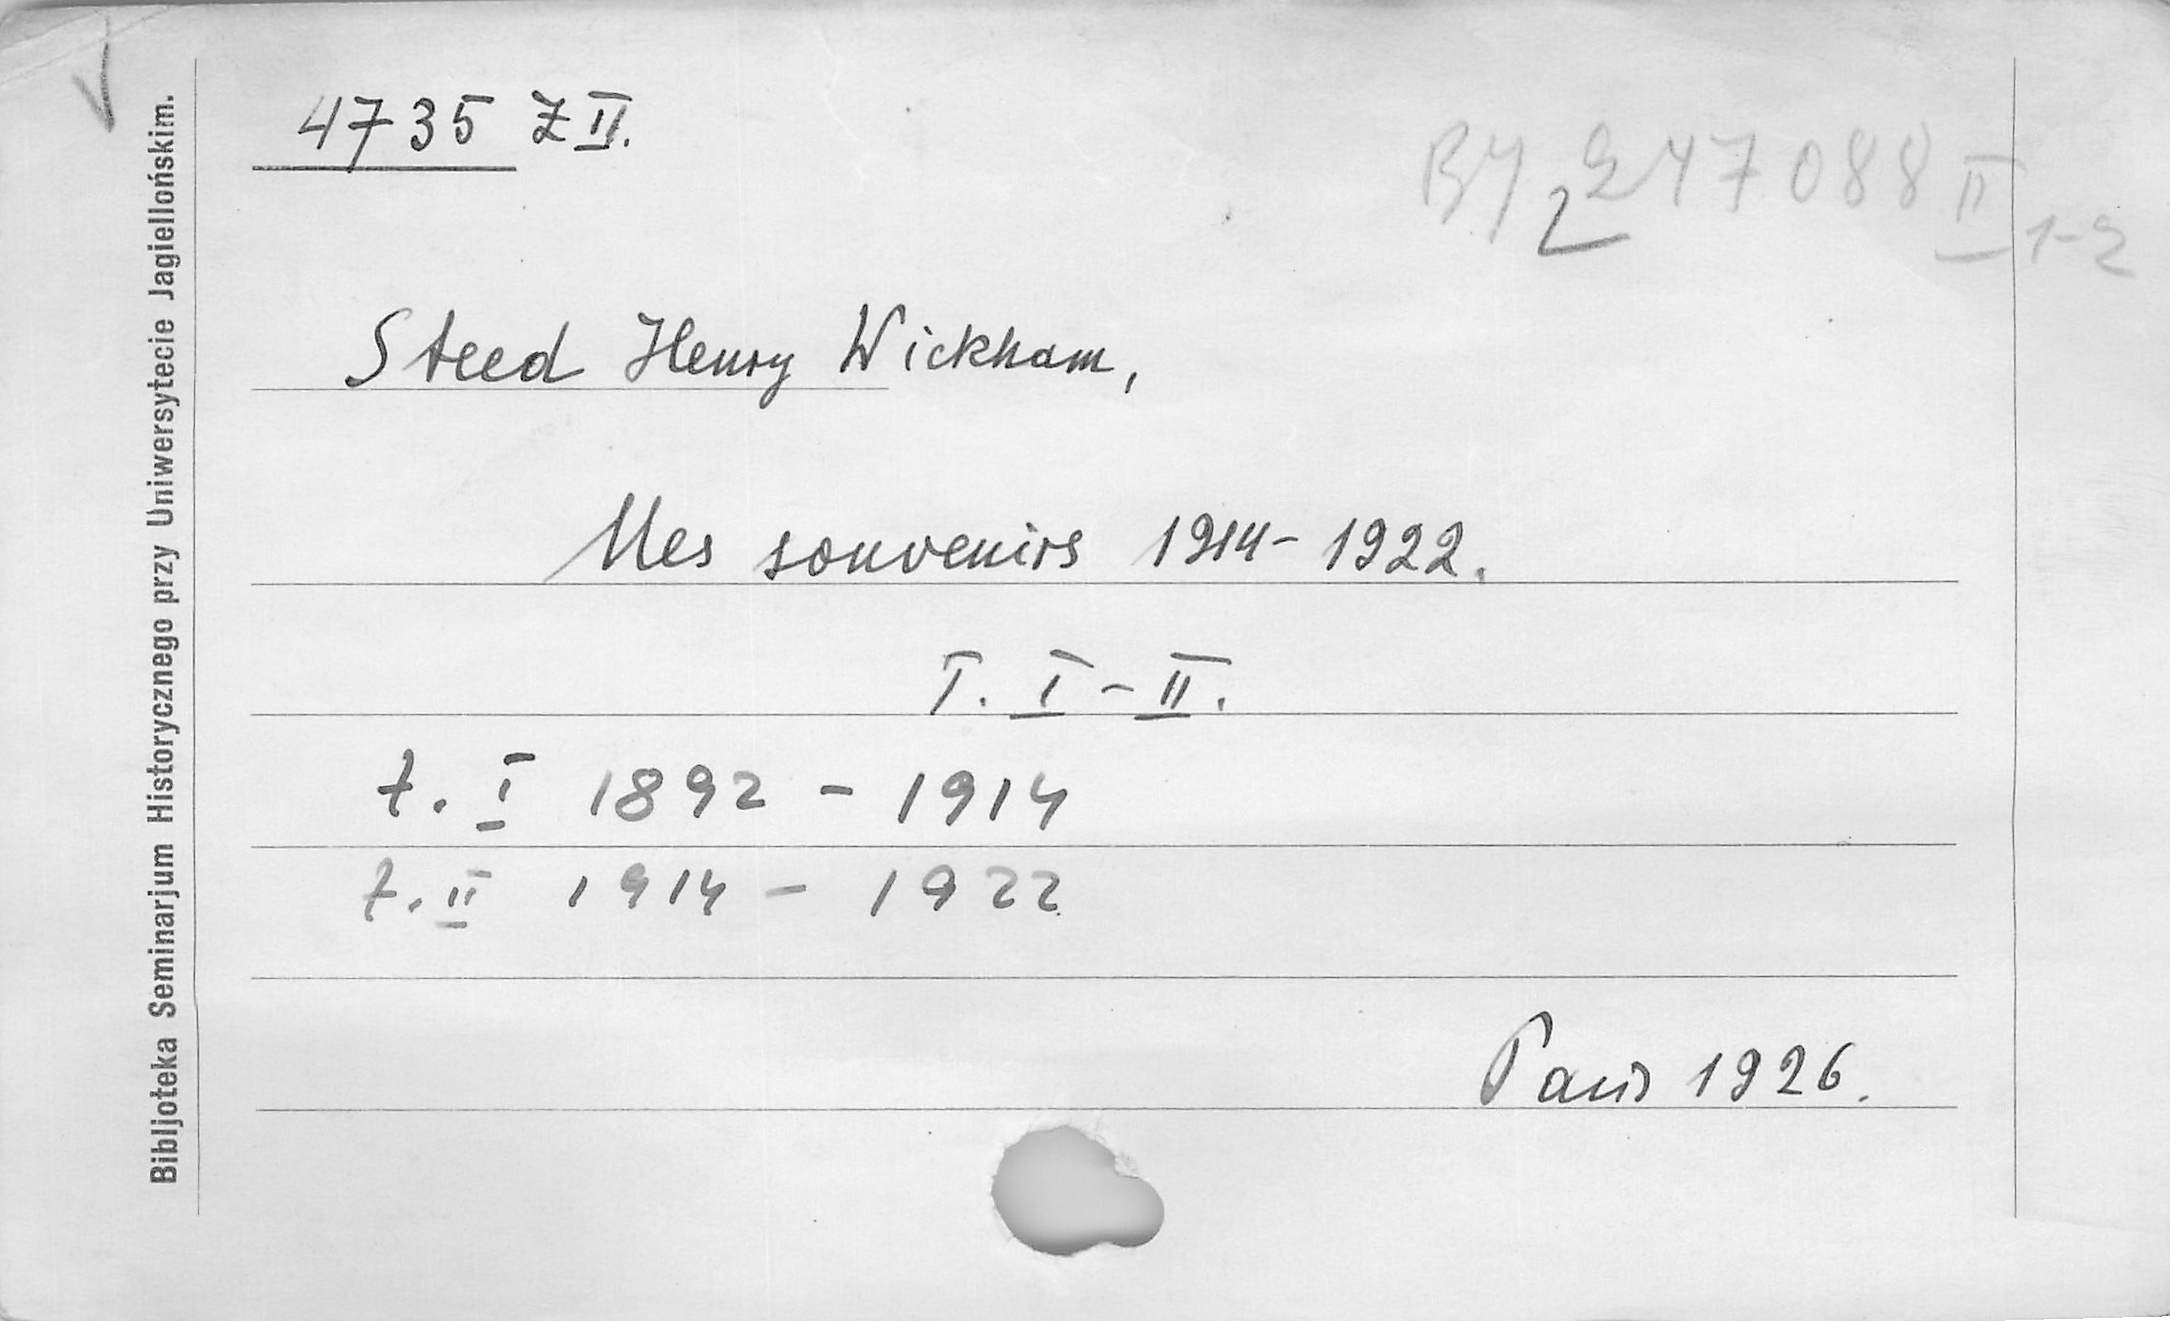 4735 Z II.
BJ 2 247088 II 1-2
Steed Henry Wickham,
Mes souvenirs 1914-1922.
T. I-II.
t. I 1892 - 1914
t. II 1914 - 1922
Paris 1926.
Bibljoteka Seminarjum Historycznego przy Uniwersytecie Jagiellońskim.